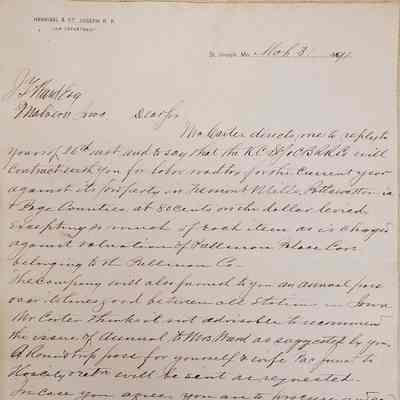 HANNIBAL & ST. JOSEPH R. R.
LAW DEPARTMENT
St. Joseph, Mo., Mch 31 1891
Esq
Malvern Iowa Dear Sir
Mr Carter directs me to reply to
yours of 26th inst. and to say that the K.C. St Jo & C B R R Co will
Contract with you for labor for the Current year
against its property in Fremont Mills, Pottawattamie
& Page Counties at 80 cents on the dollar levied
Excepting so much of each item as is charged
against valuation of Pullman Palace Cars
belonging to the Pullman Co.
The company will also furnish to you an annual pass
over its lines good between all Stations in Iowa
Mr Carter thinks it not advisable to recommend
the issue of Annual to Mrs Ward as suggested by you.
A Round trip pass for yourself & wife to
will be sent as requested.
In Case you agree you are to procure